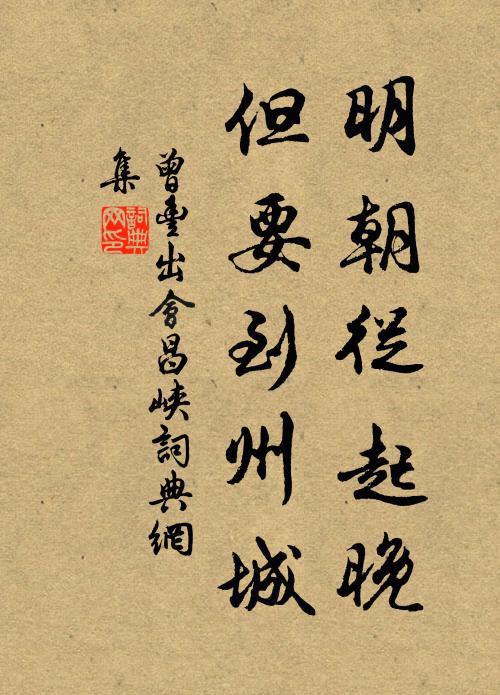 明朝從起晚
但要到州城
曾豐出會昌峽詞典網
集
詞典
网印